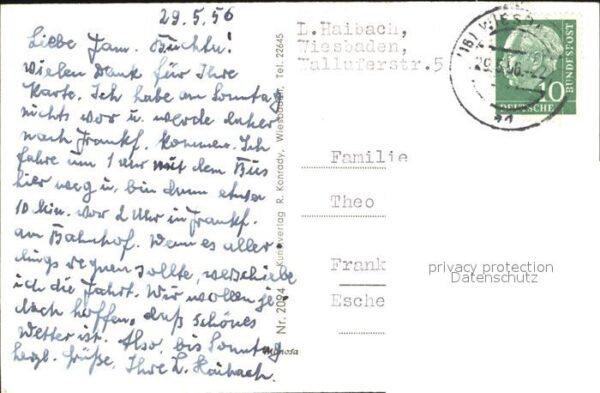 29.5.56
Liebe Fam. Büchtu!
vielen Dank für Ihre
Karte. Ich habe am Sonntag
nichts vor u. werde daher
nach Frankf. kommen. Ich
fahre um 1 Uhr mit dem Bus
hier weg u. bin dann etwa
10 Min. vor 2 Uhr in Frankf.
am Bahnhof. Wenn es aller
dings regnen sollte, verschiebe
ich die Fahrt. Wir wollen je
doch hoffen, daß schönes
Wetter ist. Also, bis Sonntag
herzl. Grüße, Ihre L. Haibach.
Nr. 2024 Kunstverlag R. Konrady, Wiesbaden, Tel. 22645
Mimosa
L.Haibach,
Wiesbaden,
Walluferstr.5
(16) WIESB
29.5.56.-22
DEUTSCHE
BUNDESPOST
10
Familie
Theo
Frank
Esche
privacy protection
Datenschutz